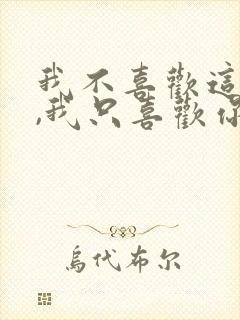 我不喜歡這
,我只喜歡你
烏代布尔